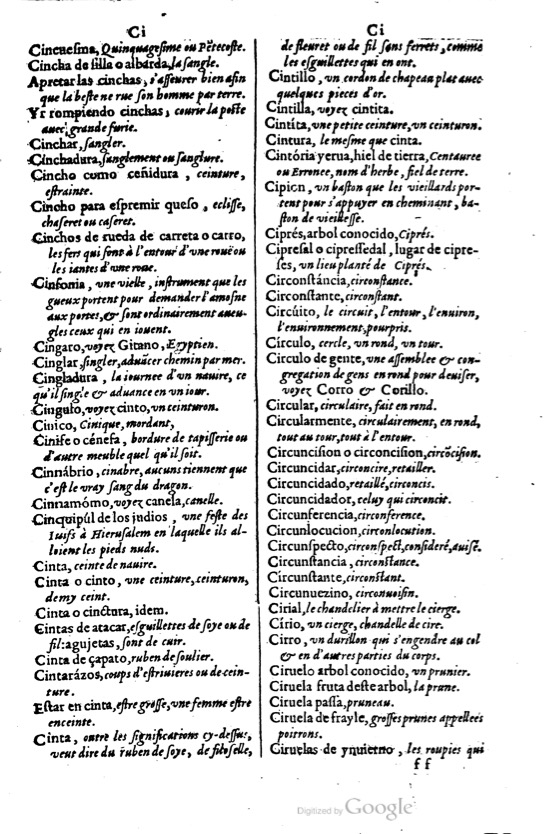 Ci
Cincuesma, Quinquagesime ou Pẽtecoste.
Cincha de silla o albarda, la sangle.
Apretar las cinchas, s'asseurer bien afin
que la beste ne rue son homme par terre.
Yr rompiendo cinchas, courir la poste
auec grande furie.
Cinchar, sangler.
Cinchadura, sanglement ou sanglure.
Cincho como ceñidura, ceinture,
estrainte.
Cincho para espremir queso, eclisse,
chaseret ou caseret.
Cinchos de rueda de carreta o carro,
les fers qui sont à l'entour d'vne rouë ou
les iantes d'vne roue.
Cinfonia, vne vielle, instrument que les
gueux portent pour demander l'amosne
aux portes, & sont ordinairement aueu-
gles ceux qui en iouent.
Cingaro, voyez Gitano, Egyptien.
Cinglar, singler, aduãcer chemin par mer.
Cingladura, la iournee d'vn nauire, ce
qu'il single & aduance en vn iour.
Cingulo, voyez cinto, vn ceinturon.
Cinico, Cinique, mordant,
Cinife o cénefa, bordure de tapisserie ou
d'autre meuble quel qu'il soit.
Cinnábrio, cinabre, aucuns tiennent que
c'est le vray sang du dragon.
Cinnamómo, voyez canela, canelle.
Cinquipúl de los judios, vne feste des
Iuifs à Hierusalem en laquelle ils al-
loient les pieds nuds.
Cinta, ceinte de nauire.
Cinta o cinto, vne ceinture, ceinturon,
demy ceint.
Cinta o cinctura, idem.
Cintas de atacar, esguillettes de soye ou de
fil: agujetas, sont de cuir.
Cinta de çapato, ruben de soulier.
Cintarázos, coups d'estriuieres ou de cein-
ture.
Estar en cinta, estre grosse, vne femme estre
enceinte.
Cinta, outre les significations cy-dessus,
veut dire du ruben de soye, de filoselle,
Ci
de fleuret ou de fil sans ferrets, comme
les esguillettes qui en ont.
Cintillo, vn cordon de chapeau plat auec
quelques pieces d'or.
Cintilla, voyez cintita.
Cintíta, vne petite ceinture, vn ceinturon.
Cintura, le mesme que cinta.
Cintória yerua, hiel de tierra, Centauree
ou Erronce, nom d'herbe, fiel de terre.
Cipion, vn baston que les vieillards por-
tent pour s'appuyer en cheminant, ba-
ston de vieillesse.
Ciprés, arbol conocido, Ciprés.
Cipresal o cipressedal, lugar de cipre-
ses, vn lieu planté de Ciprés.
Circonstáncia, circonstance.
Circonstante, circonstant.
Circúito, le circuit, l'entour, l'enuiron,
l'enuironnement, pourpris.
Círculo, cercle, vn rond, vn tour.
Circulo de gente, vne assemblee & con-
gregation de gens en rond pour deuiser,
voyez Corro & Corillo.
Circular, circulaire, fait en rond.
Circularmente, circulairement, en rond,
tout au tour, tout à l'entour.
Circuncision o circoncision, circõcision.
Circuncidar, circoncire, retailler.
Circuncidado, retaillé, circoncis.
Circuncidador, celuy qui circoncit.
Circunferencia, circonference.
Circunlocucion, circonlocution.
Circunspecto, circonspect, consideré, auisé.
Circunstancia, circonstance.
Circunstante, circonstant.
Circunuezino, circonuoisin.
Cirial, le chandelier à mettre le cierge.
Círio, vn cierge, chandelle de cire.
Cirro, vn durillon qui s'engendre au col
& en d'autres parties du corps.
Ciruelo arbol conocido, vn prunier.
Ciruela fruta deste arbol, la prune.
Ciruela passa, pruneau.
Ciruela de frayle, grosses prunes appellees
poitrons.
Ciruelas de ynuierno, les roupies qui
ff
Digitized by Google